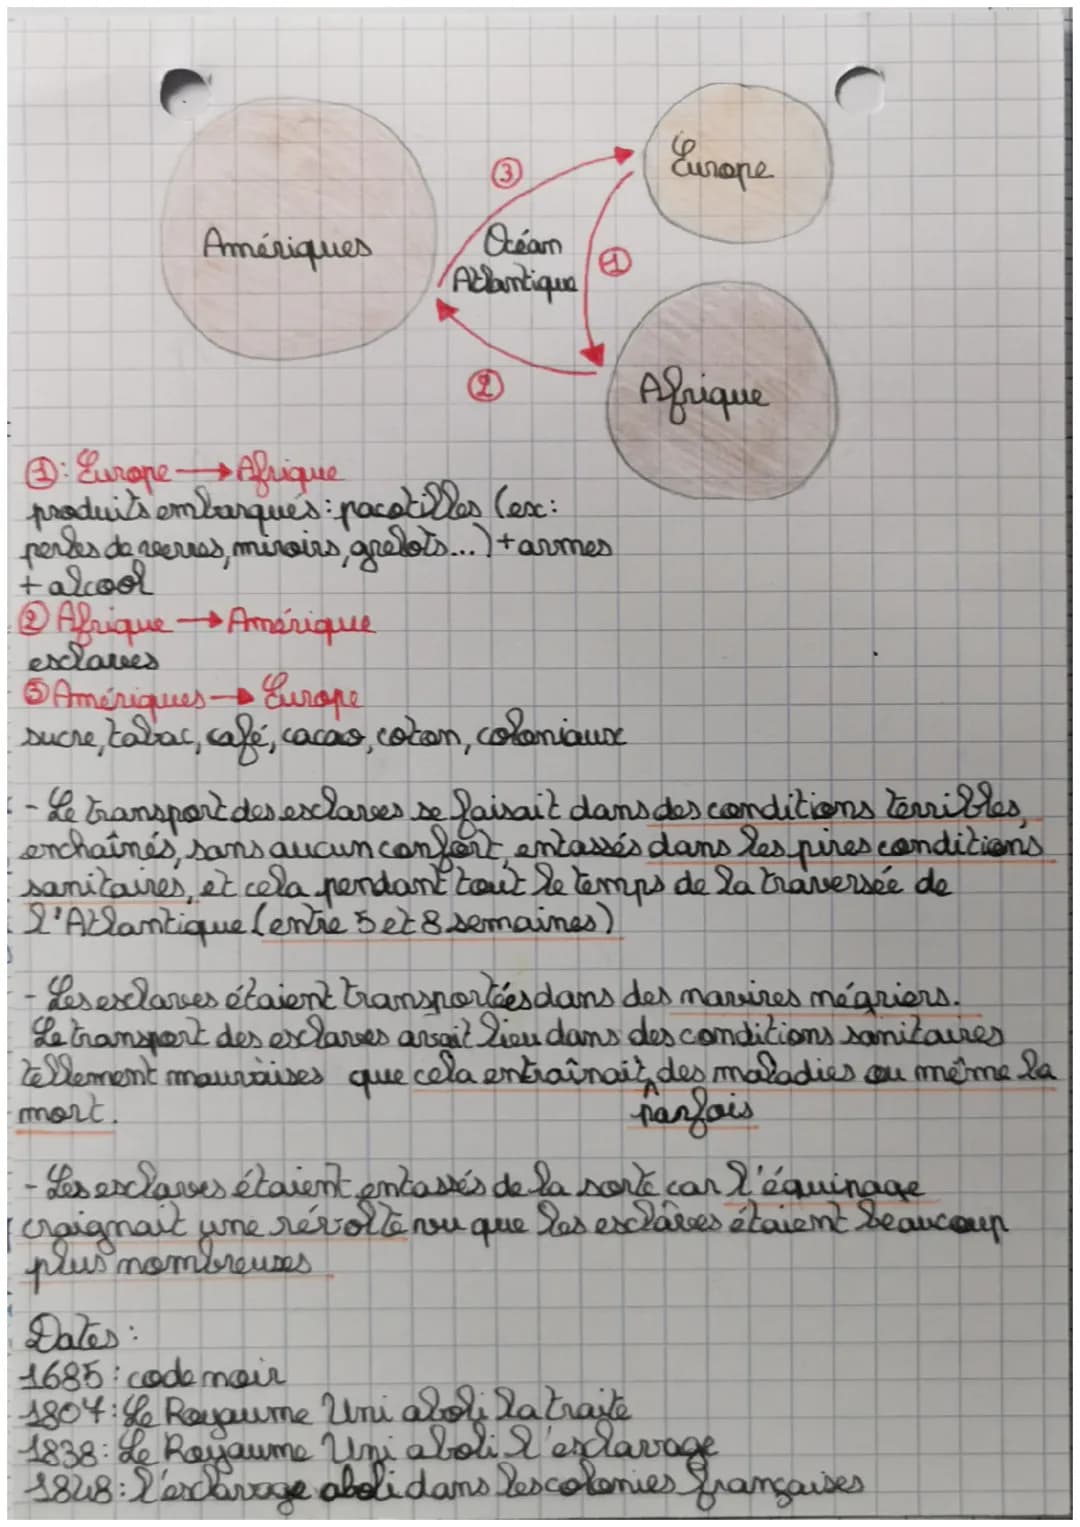 Amériques
③
Europe
Océan
Atlantique
①
②
Afrique
①: Europe → Afrique
produits embarqués: pacotilles (ex:
perles de verres, miroirs, grelots...) + armes
+ alcool
② Afrique → Amérique
esclaves
③ Amériques → Europe
sucre, tabac, café, cacao, coton, coloniaux
- Le transport des esclaves se faisait dans des conditions terribles,
enchaînés, sans aucun confort, entassés dans les pires conditions
sanitaires, et cela pendant tout le temps de la traversée de
l'Atlantique (entre 5 et 8 semaines)
- Les esclaves étaient transportées dans des navires négriers.
Le transport des esclaves avait lieu dans des conditions sanitaires
tellement mauvaises que cela entraînait des maladies ou même la
mort. parfois
- Les esclaves étaient entassés de la sorte car l'équipage
craignait une révolte vu que les esclaves étaient beaucoup
plus nombreuses
Dates:
1685: code noir
1807: Le Royaume Uni aboli la traite
1838: Le Royaume Uni aboli l'esclavage
1848: l'esclavage aboli dans les colonies françaises